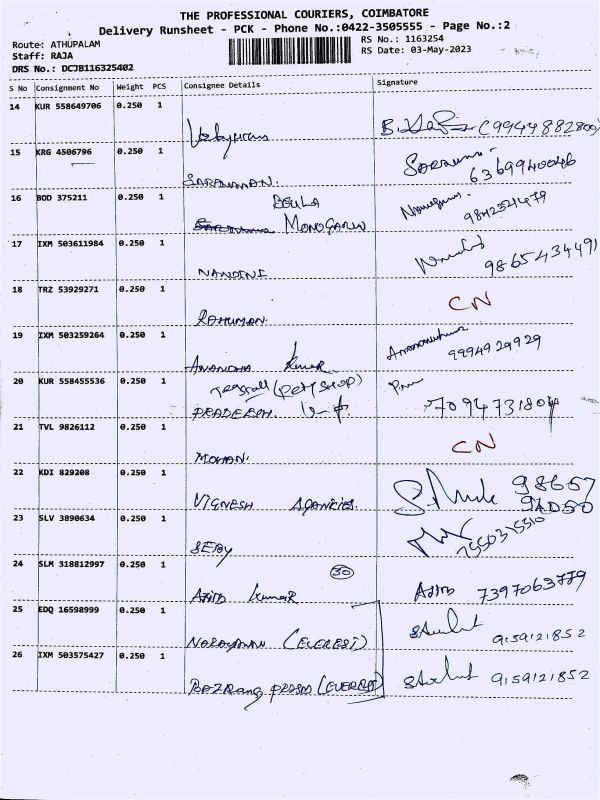 THE PROFESSIONAL COURIERS, COIMBATORE
Delivery Runsheet - PCK - Phone No.:0422-3505555 - Page No.:2
Route: ATHUPALAM RS No.: 1163254
Staff: RAJA RS Date: 03-May-2023
DRS No.: DCJB116325402
S No Consignment No Weight PCS Consignee Details Signature
14 KUR 558649706 0.250 1
(9944882800)
15 KRG 4506796 0.250 1
SARAVANAN. 6369940046
16 BOD 375211 0.250 1 BEULA
MONOGARAN 9842351479
17 IXM 503611984 0.250 1
NANDINI 9865434491
18 TRZ 53929271 0.250 1 CN
RAHUMAN.
19 IXM 503259264 0.250 1
ANANDHA Kumar 9994929929
20 KUR 558455536 0.250 1 (PET SHOP)
PRADEESH. 7094731804
21 TVL 9826112 0.250 1 CN
MOHAN.
22 KDI 829208 0.250 1 98657
VIGNESH AGANCIES. 94050
23 SLV 3890634 0.250 1
SEBY 7550315510
24 SLM 318812997 0.250 1 30
AJITH Kumar AJITH 7397063779
25 EDQ 16598999 0.250 1
NARAYANAN (EVEREST) 9159121852
26 IXM 503575427 0.250 1
(EVEREST) 9159121852